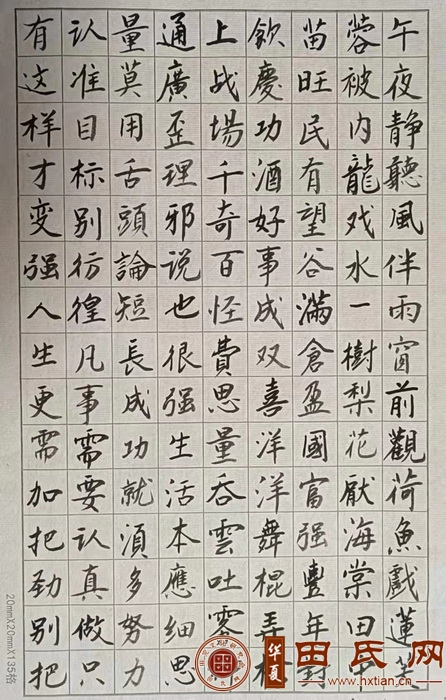 午夜静聽風伴雨窗前觀荷魚戲蓮芙
蓉被内龍戏水一樹梨花厭海棠田
苗旺民有望谷滿倉盈國富强豐年
飲慶功酒好事成双喜洋洋舞棍弄
上战場千奇百怪費思量吞雲吐
通廣歪理邪说也很强生活本應细思
量莫用舌頭論短長成功就須多努力
认准目标别彷徨凡事需要认真做只
有这样才变强人生更需加把劲别把
20mmX20mmX135格
华夏
田氏网
www.hxtian.cn